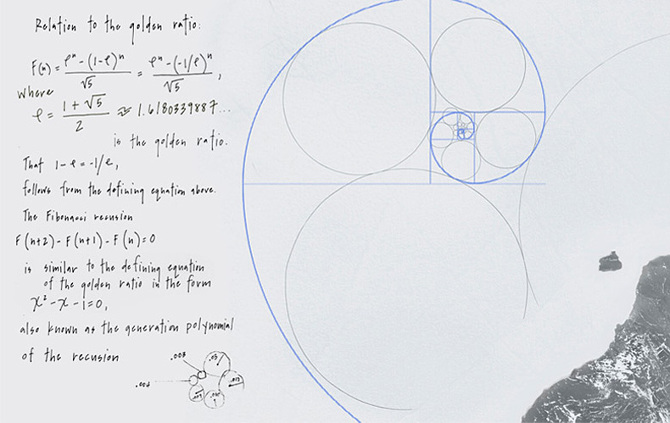 Relation to the golden ratio:
F(n) = φⁿ - (1-φ)ⁿ / √5 = φⁿ - (-1/φ)ⁿ / √5 ,
where
φ = 1 + √5 / 2 ≈ 1.6180339887...
is the golden ratio.
That 1 - φ = -1/φ,
follows from the defining equation above.
The Fibonacci recusion
F(n+2) - F(n+1) - F(n) = 0
is similar to the defining equation
of the golden ratio in the form
x² - x - 1 = 0,
also known as the generation polynomial
of the recusion
.003
.002